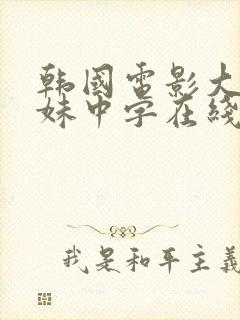 韩國電影大
妹中字在綫
我是和平主義